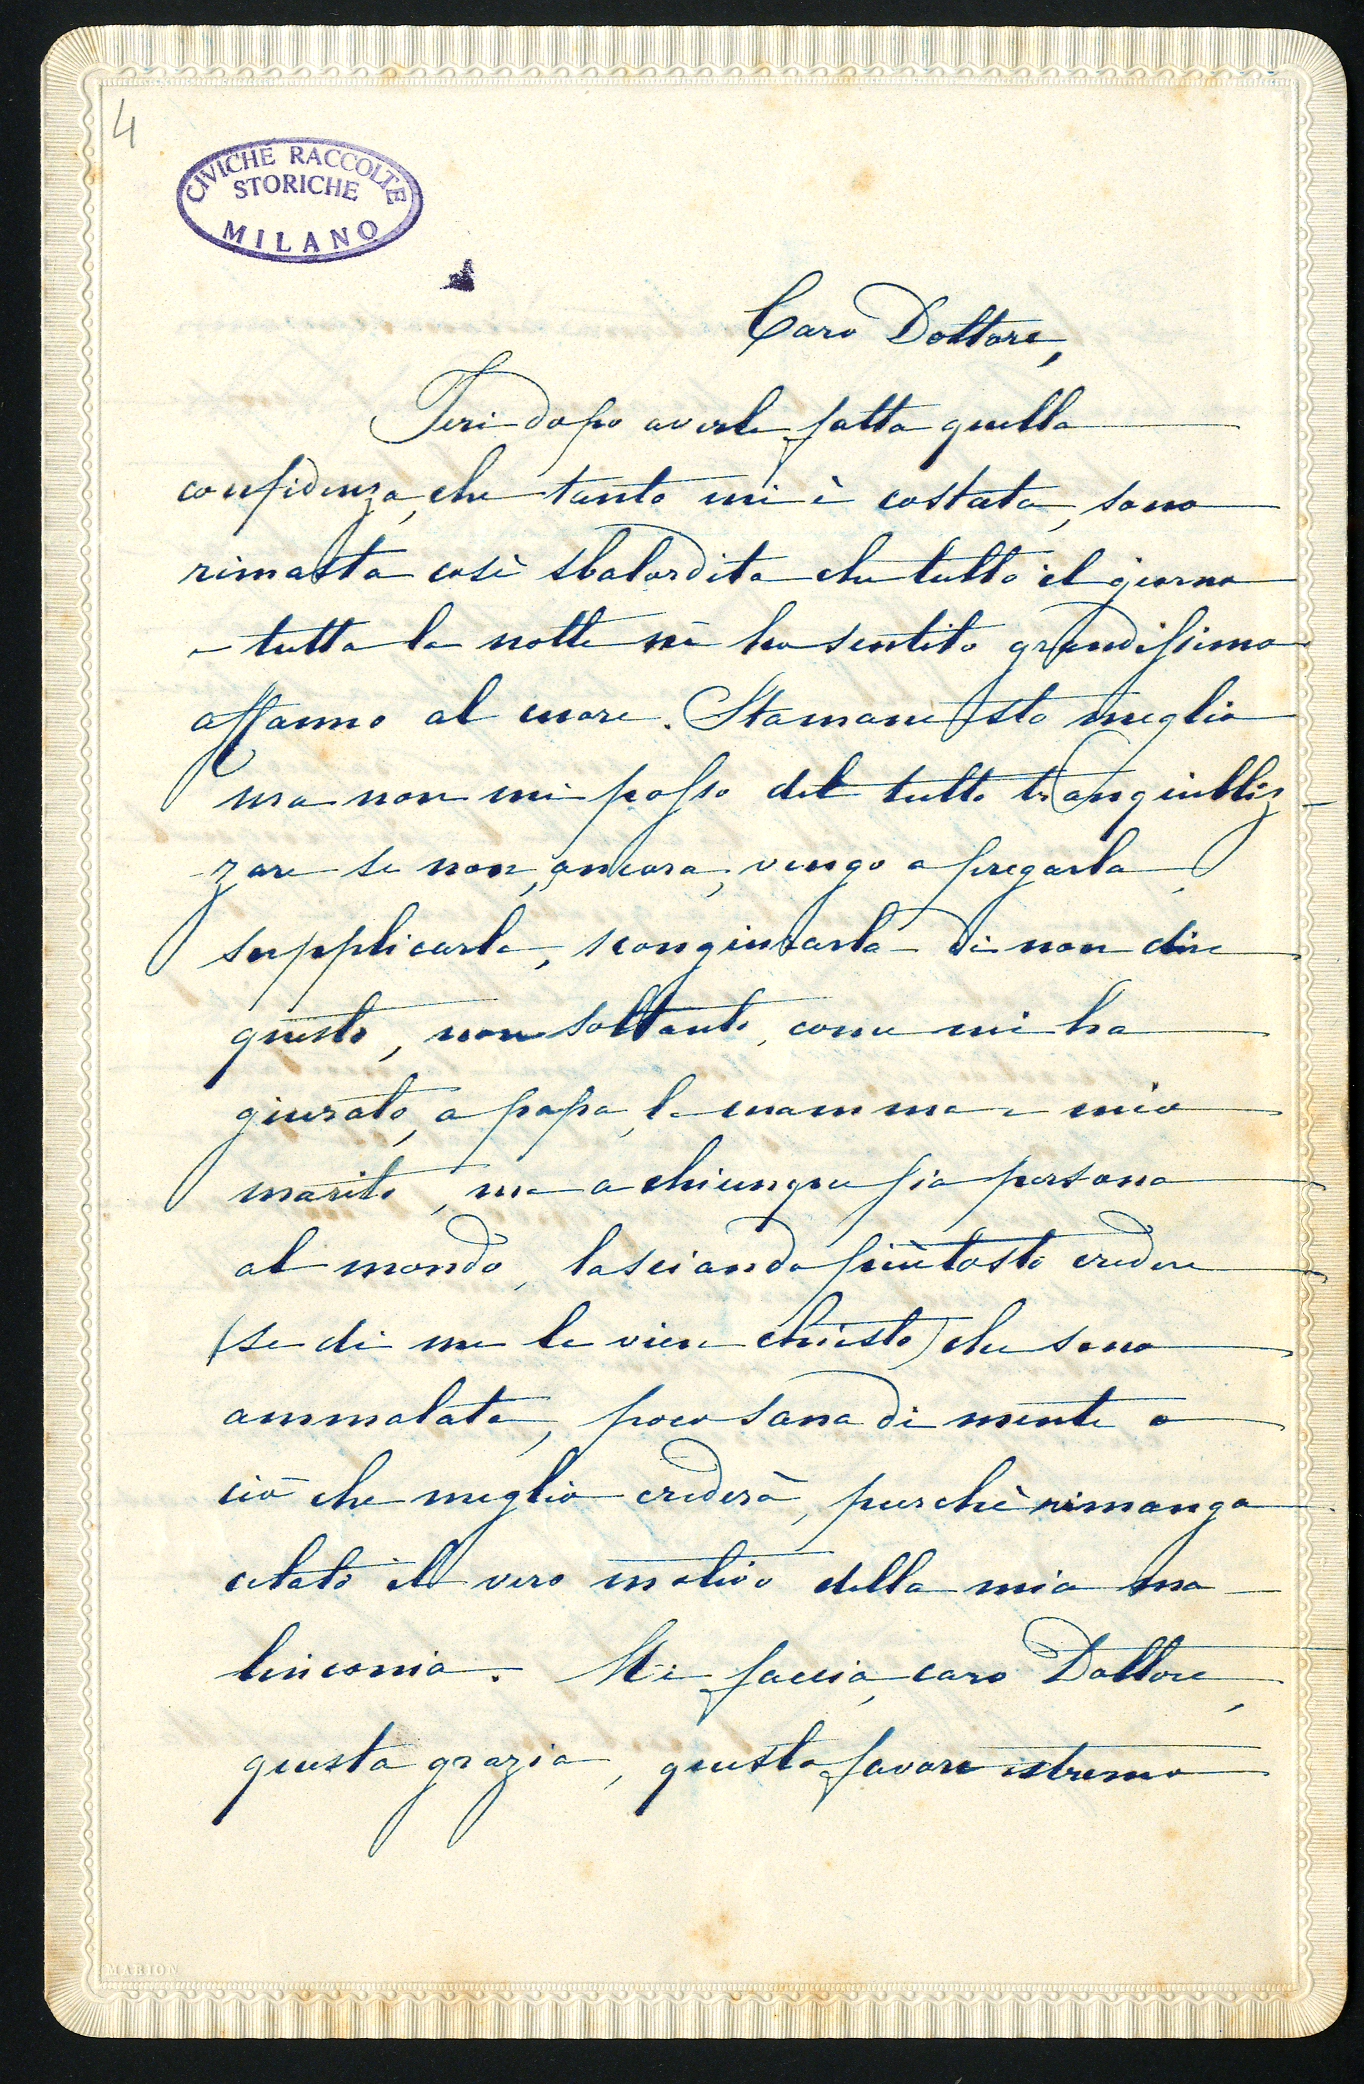 4
CIVICHE RACCOLTE
STORICHE
MILANO
Caro Dottore,
Ieri dopo averle fatta quella
confidenza, che tanto mi è costata, sono
rimasta così sbalordita che tutto il giorno
e tutta la notte ne ho sentito grandissimo
affanno al cuore. Stamane sto meglio
ma non mi posso del tutto tranquilliz-
zare se non, ancora, vengo a pregarla,
supplicarla, scongiurarla di non dire
questo, non soltanto, come mi ha
giurato, a papa, la mamma e mio
marito, ma a chiunque sia persona
al mondo, lasciando piùtosto credere
(se di me le vien chiesto) che sono
ammalata, poco sana di mente o
ciò che meglio crederà, purchè rimanga
celato il vero motivo della mia ma-
linconia. Mi faccia, caro Dottore,
questa grazia, questo favore estremo
MARION